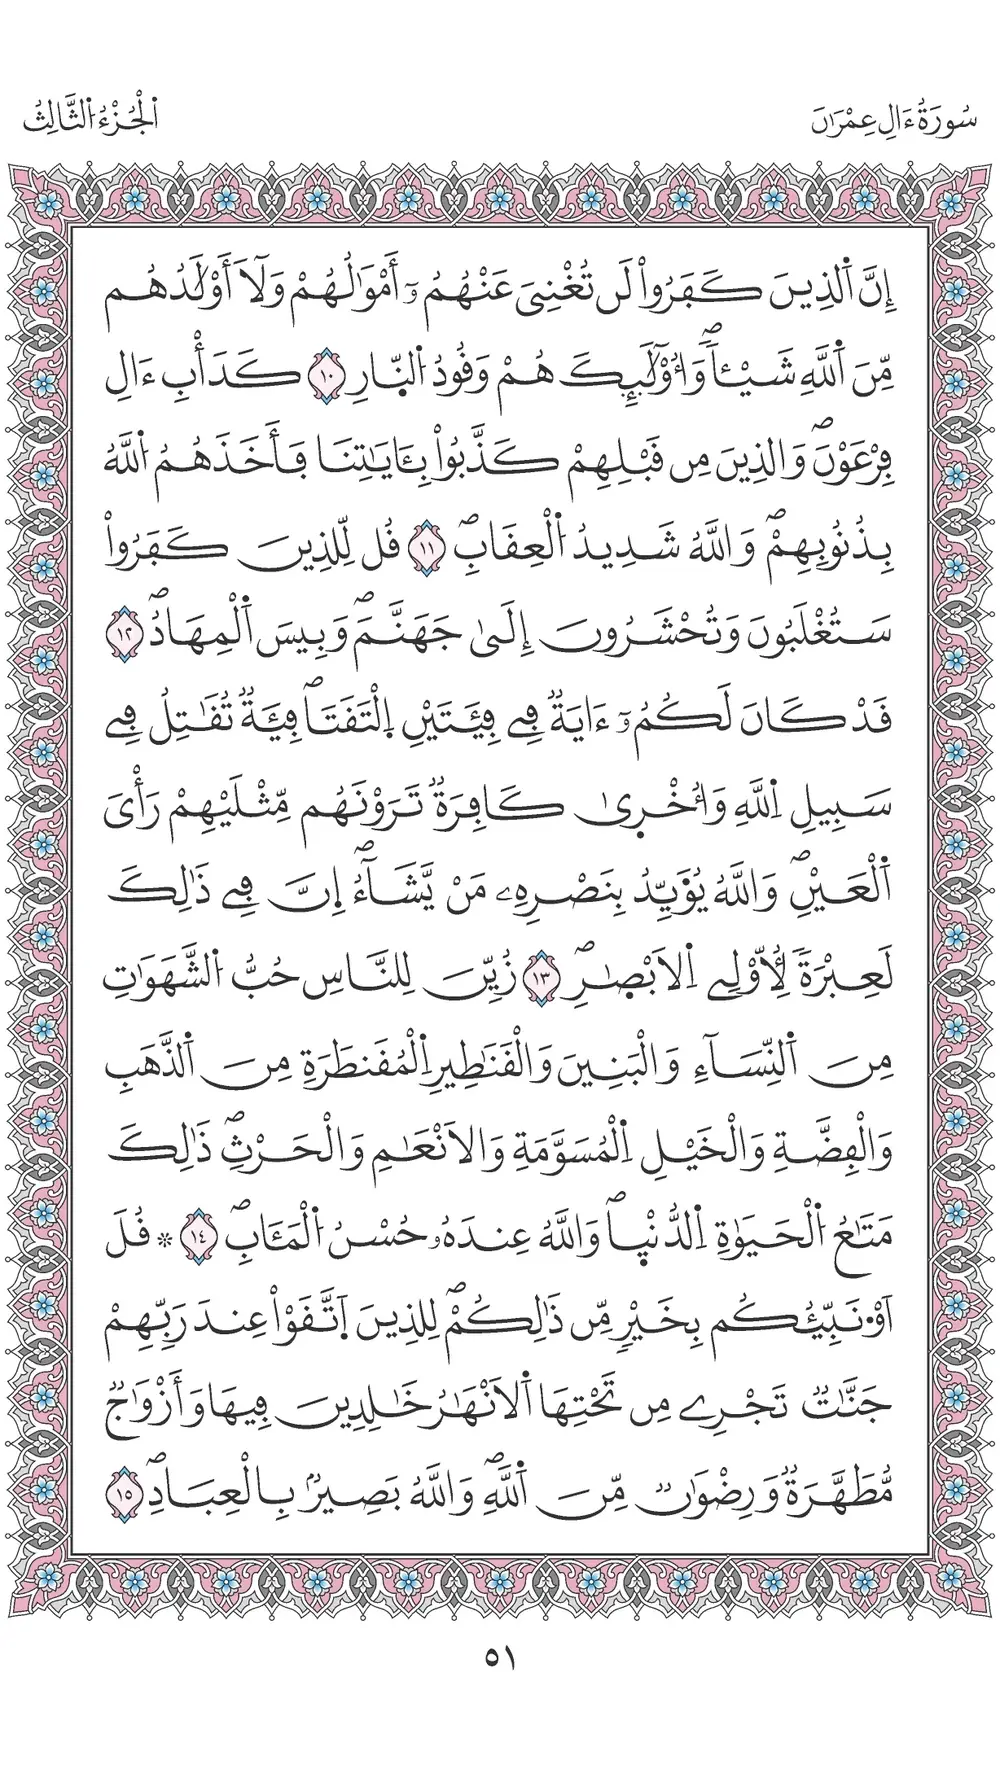 سُورَةُ ءَالِ عِمْرَٰنَ
اَ۬لْجُزْءُ اُ۬لثَّالِثُ
إِنَّ اَ۬لذِينَ كَفَرُواْ لَن تُغْنِيَ عَنْهُمُۥٓ أَمْوَٰلُهُمْ وَلَآ أَوْلَٰدُهُم
مِّنَ اَ۬للَّهِ شَيْـٔاٗۖ وَأُوْلَٰٓئِكَ هُمْ وَقُودُ اُ۬لنّ۪ارِ ١٠ كَدَأْبِ ءَالِ
فِرْعَوْنَۖ وَالذِينَ مِن قَبْلِهِمْ كَذَّبُواْ بِـَٔايَٰتِنَا فَأَخَذَهُمُ اُ۬للَّهُ
بِذُنُوبِهِمْۖ وَاللَّهُ شَدِيدُ اُ۬لْعِقَابِۖ ١١ قُل لِّلذِينَ كَفَرُواْ
سَتُغْلَبُونَ وَتُحْشَرُونَ إِلَىٰ جَهَنَّمَۖ وَبِيسَ اَ۬لْمِهَادُۖ ١٢
قَدْ كَانَ لَكُمُۥٓ ءَايَةٞ فِے فِئَتَيْنِ اِ۪لْتَقَتَاۖ فِئَةٞ تُقَٰتِلُ فِے
سَبِيلِ اِ۬للَّهِ وَأُخْر۪يٰ كَافِرَةٞ تَرَوْنَهُم مِّثْلَيْهِمْ رَأْيَ
اَ۬لْعَيْنِۖ وَاللَّهُ يُؤَيِّدُ بِنَصْرِهِۦ مَنْ يَّشَآءُۖ اِنَّ فِے ذَٰلِكَ
لَعِبْرَةٗ لِّأُوْلِے اِ۬لَابْصٰ۪رِۖ ١٣ زُيِّنَ لِلنَّاسِ حُبُّ اُ۬لشَّهَوَٰتِ
مِنَ اَ۬لنِّسَآءِ وَالْبَنِينَ وَالْقَنَٰطِيرِ اِ۬لْمُقَنطَرَةِ مِنَ اَ۬لذَّهَبِ
وَالْفِضَّةِ وَالْخَيْلِ اِ۬لْمُسَوَّمَةِ وَالَانْعَٰمِ وَالْحَرْثِۖ ذَٰلِكَ
مَتَٰعُ اُ۬لْحَيَوٰةِ اِ۬لدُّنْي۪اۖ وَاللَّهُ عِندَهُۥ حُسْنُ اُ۬لْمَـَٔابِۖ ١٤ ۞ قُلَ
اَوْ۬نَبِّئُكُم بِخَيْرٖ مِّن ذَٰلِكُمْۖ لِلذِينَ اَ۪تَّقَوْاْ عِندَ رَبِّهِمْ
جَنَّٰتٞ تَجْرِے مِن تَحْتِهَا اَ۬لَانْهَٰرُ خَٰلِدِينَ فِيهَا وَأَزْوَٰجٞ
مُّطَهَّرَةٞ وَرِضْوَٰنٞ مِّنَ اَ۬للَّهِۖ وَاللَّهُ بَصِيرُۢ بِالْعِبَادِۖ ١٥
٥١